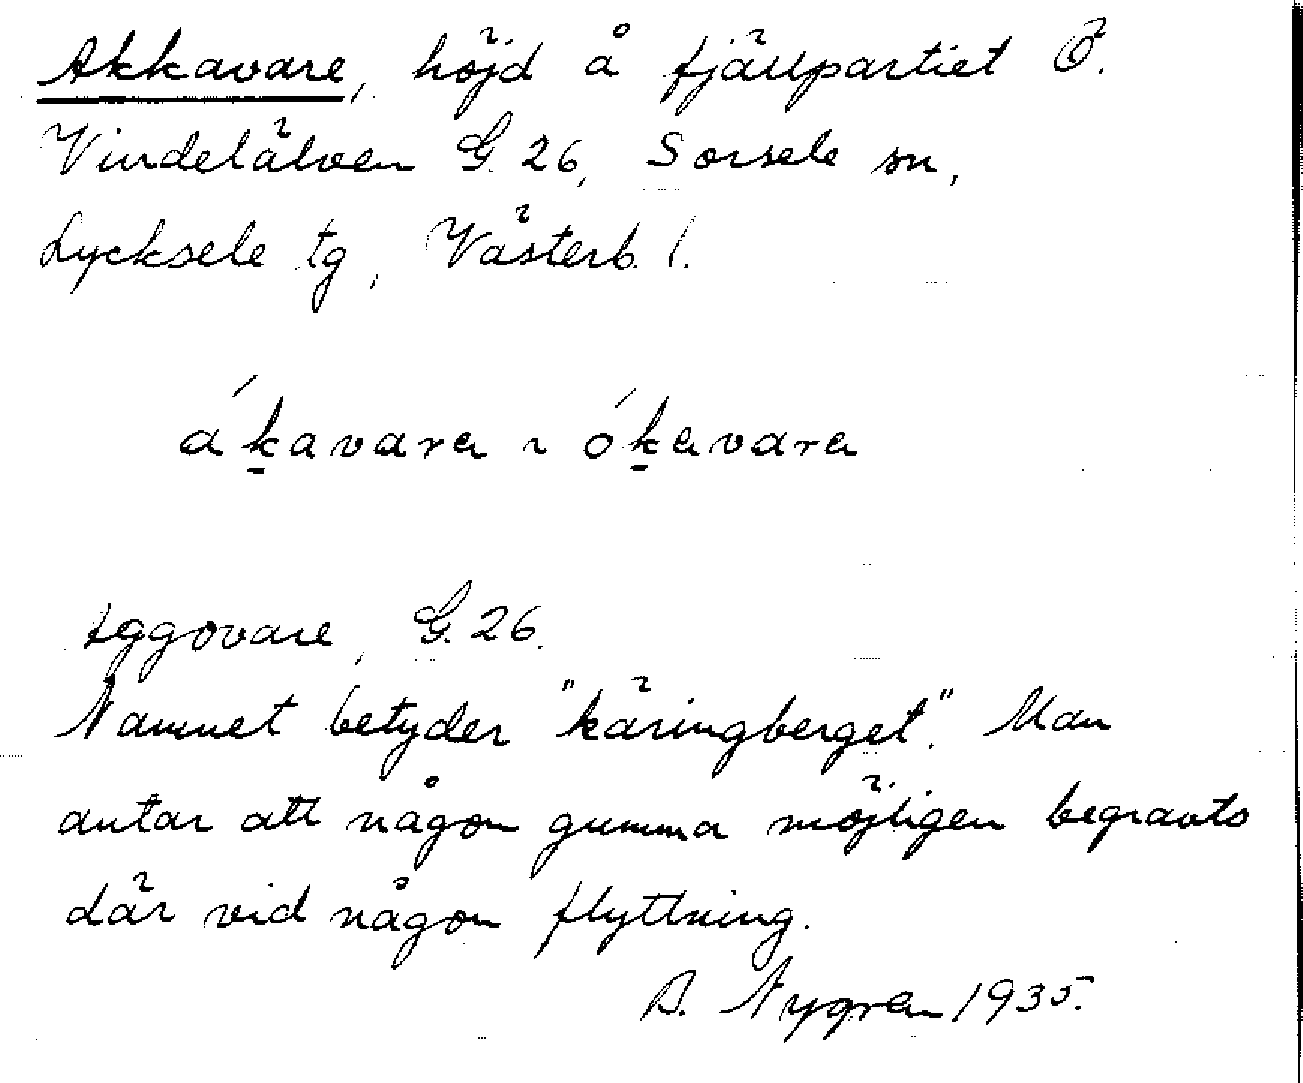 Akkavare, höjd å fjällpartiet Ö.
Vindelälven G. 26, Sorsele sn,
Lycksele tg, Västerb. l.
áḵavara ~ óḵavara
Aggovare, G. 26.
Namnet betyder "käringberget". Man
antar att någon gumma möjligen begravts
där vid någon flyttning.
A. Nygren 1935.